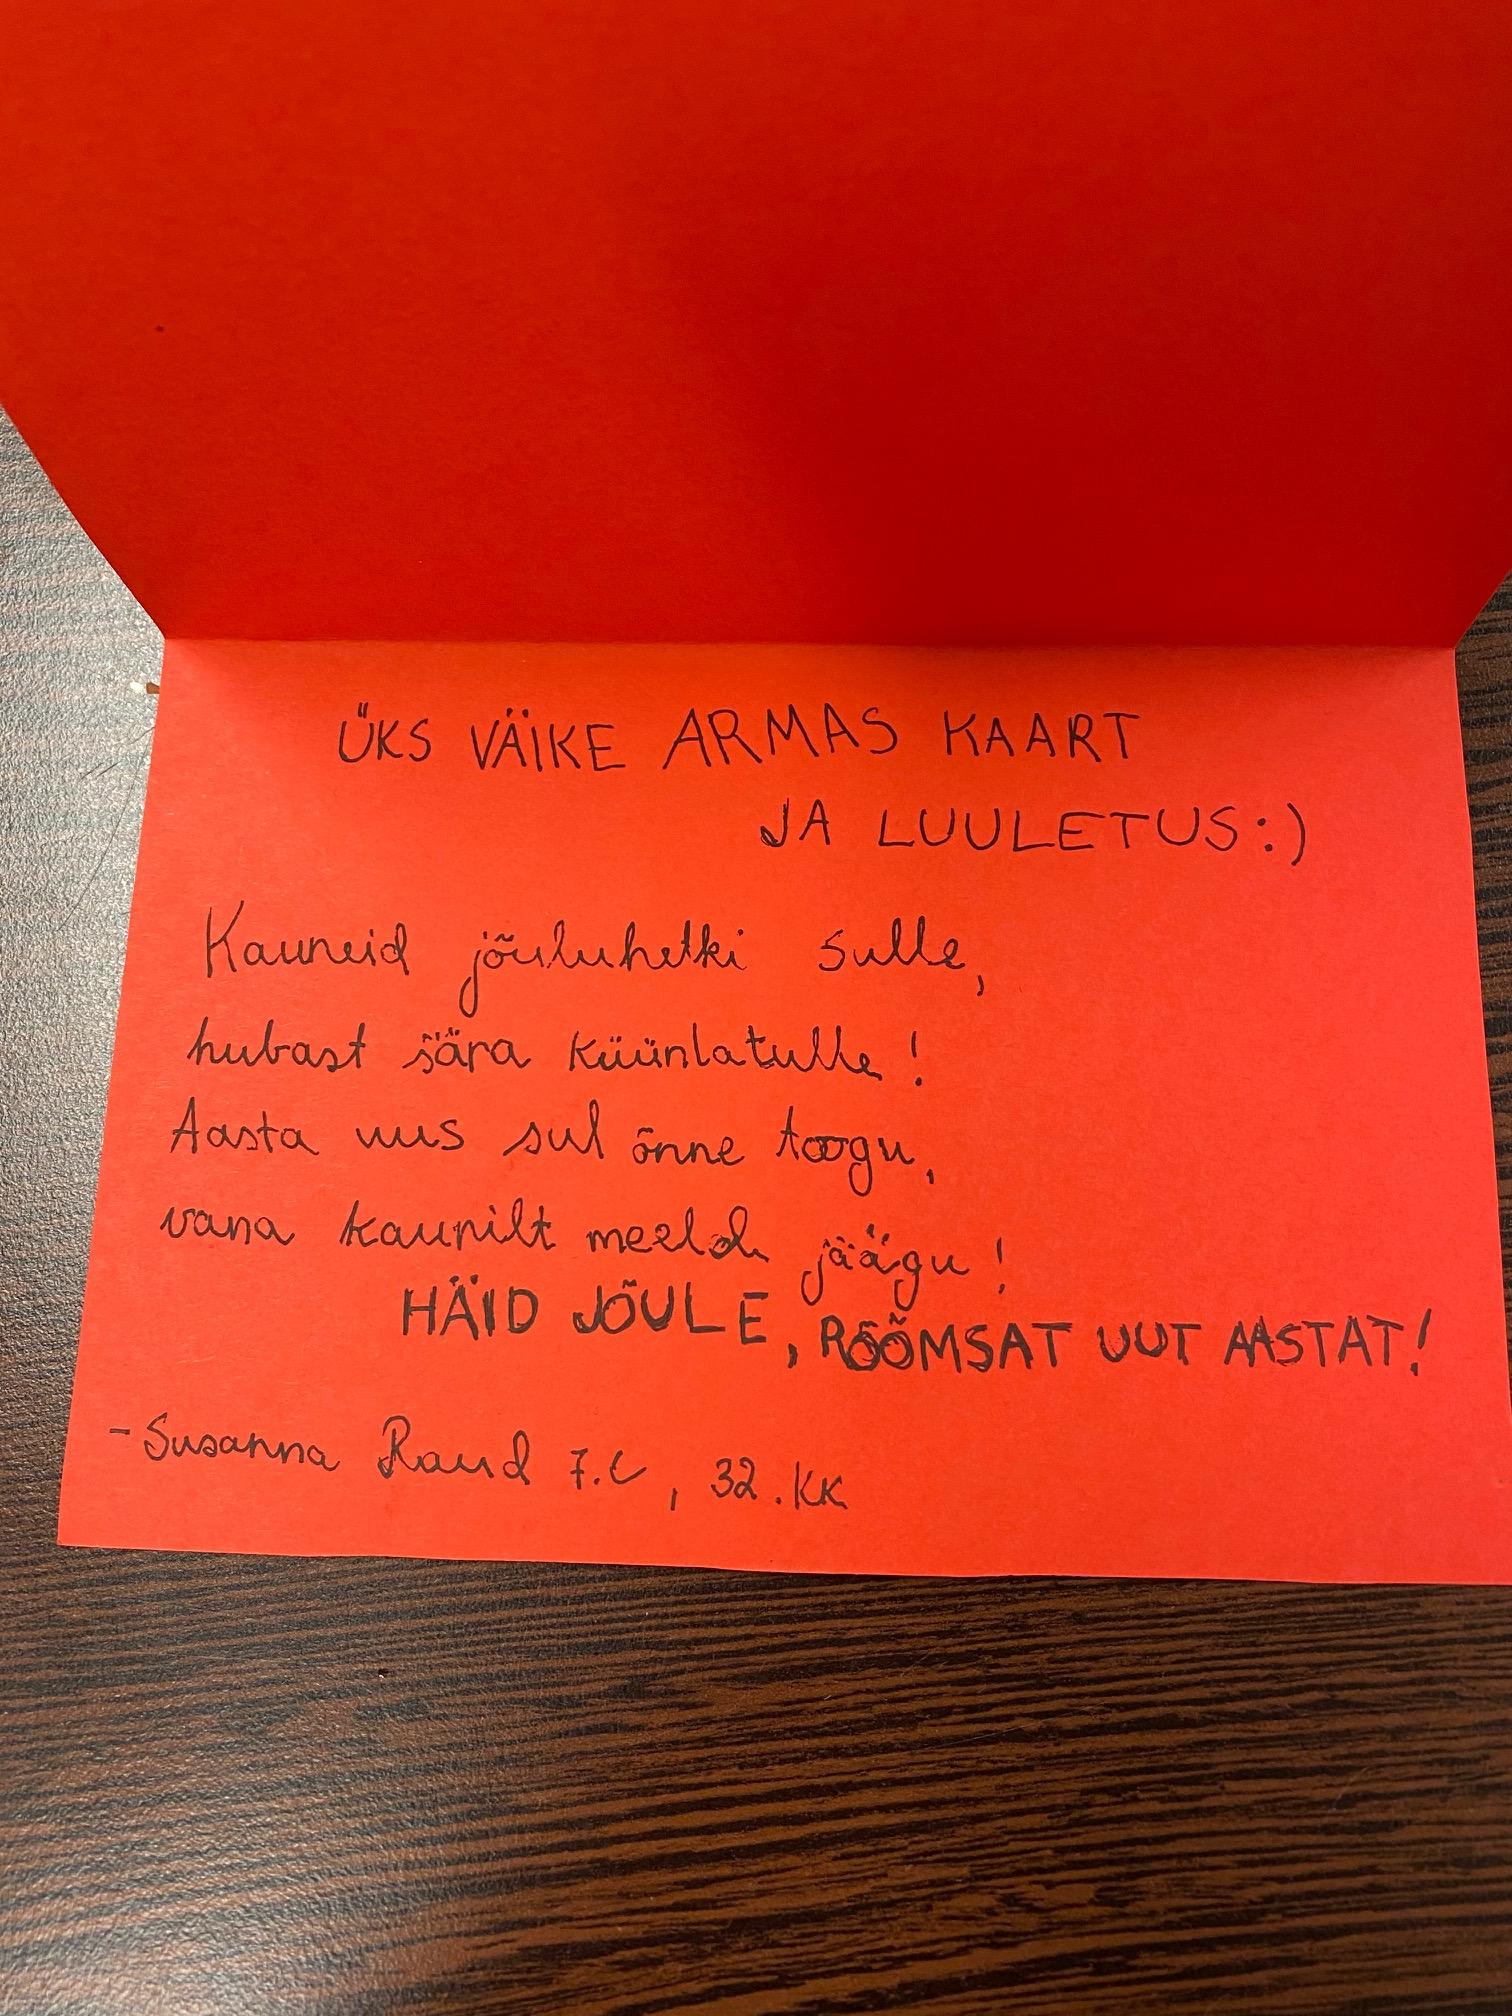 ÜKS VÄIKE ARMAS KAART
JA LUULETUS:)
Kauneid jõuluhetki sulle,
hubast sära küünlatulle!
Aasta uus sul õnne toogu,
vana kaunilt meelde jäägu!
HÄID JÕULE, RÕÕMSAT UUT AASTAT!
-Susanna Raud 7.C, 32.KK